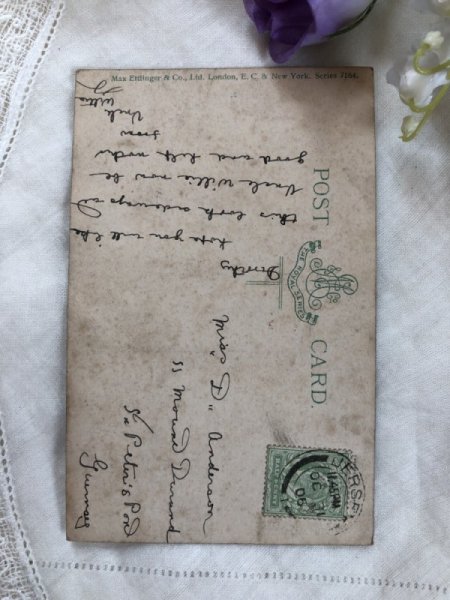 Max Ettlinger & Co., Ltd. London, E. C. & New York. Series 7164.
POST CARD.
THE ROYAL SERIES
Dorothy
hope you will like
this look sideways at
Uncle Willie now be
good and help mother
from
Uncle
Willie
Miss D. Anderson
11 Mount Durand
St Peter's Port
Guernsey
JERSEY
OC
06